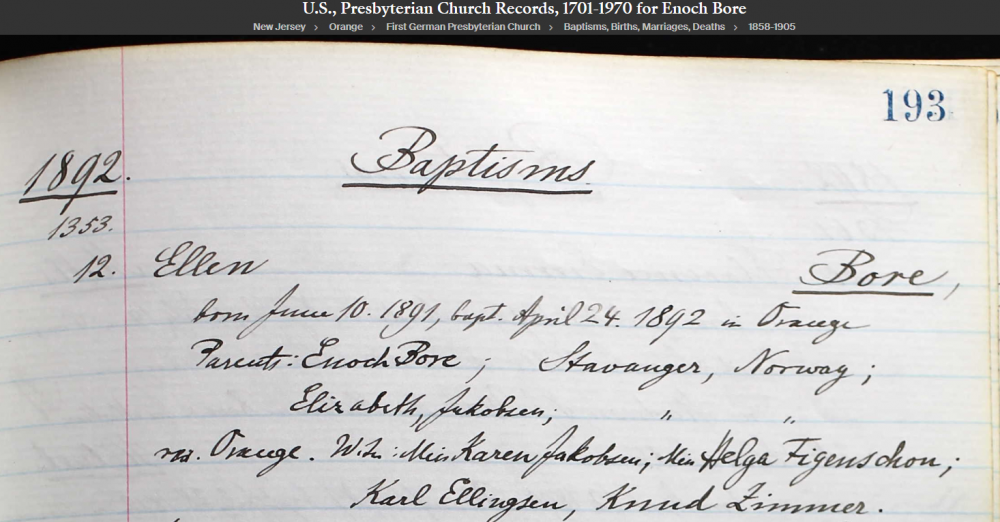 U.S., Presbyterian Church Records, 1701-1970 for Enoch Bore
New Jersey > Orange > First German Presbyterian Church > Baptisms, Births, Marriages, Deaths > 1858-1905
193
1892. Baptisms
1353.
12. Ellen Bore,
born June 10. 1891, bapt. April 24. 1892 in Orange
Parents: Enoch Bore ; Stavanger, Norway ;
Elizabeth, Jakobsen; " "
res. Orange. Wit.: Miss Karen Jakobsen; Miss Helga Figenschou;
Karl Ellingsen, Knud Zimmer.